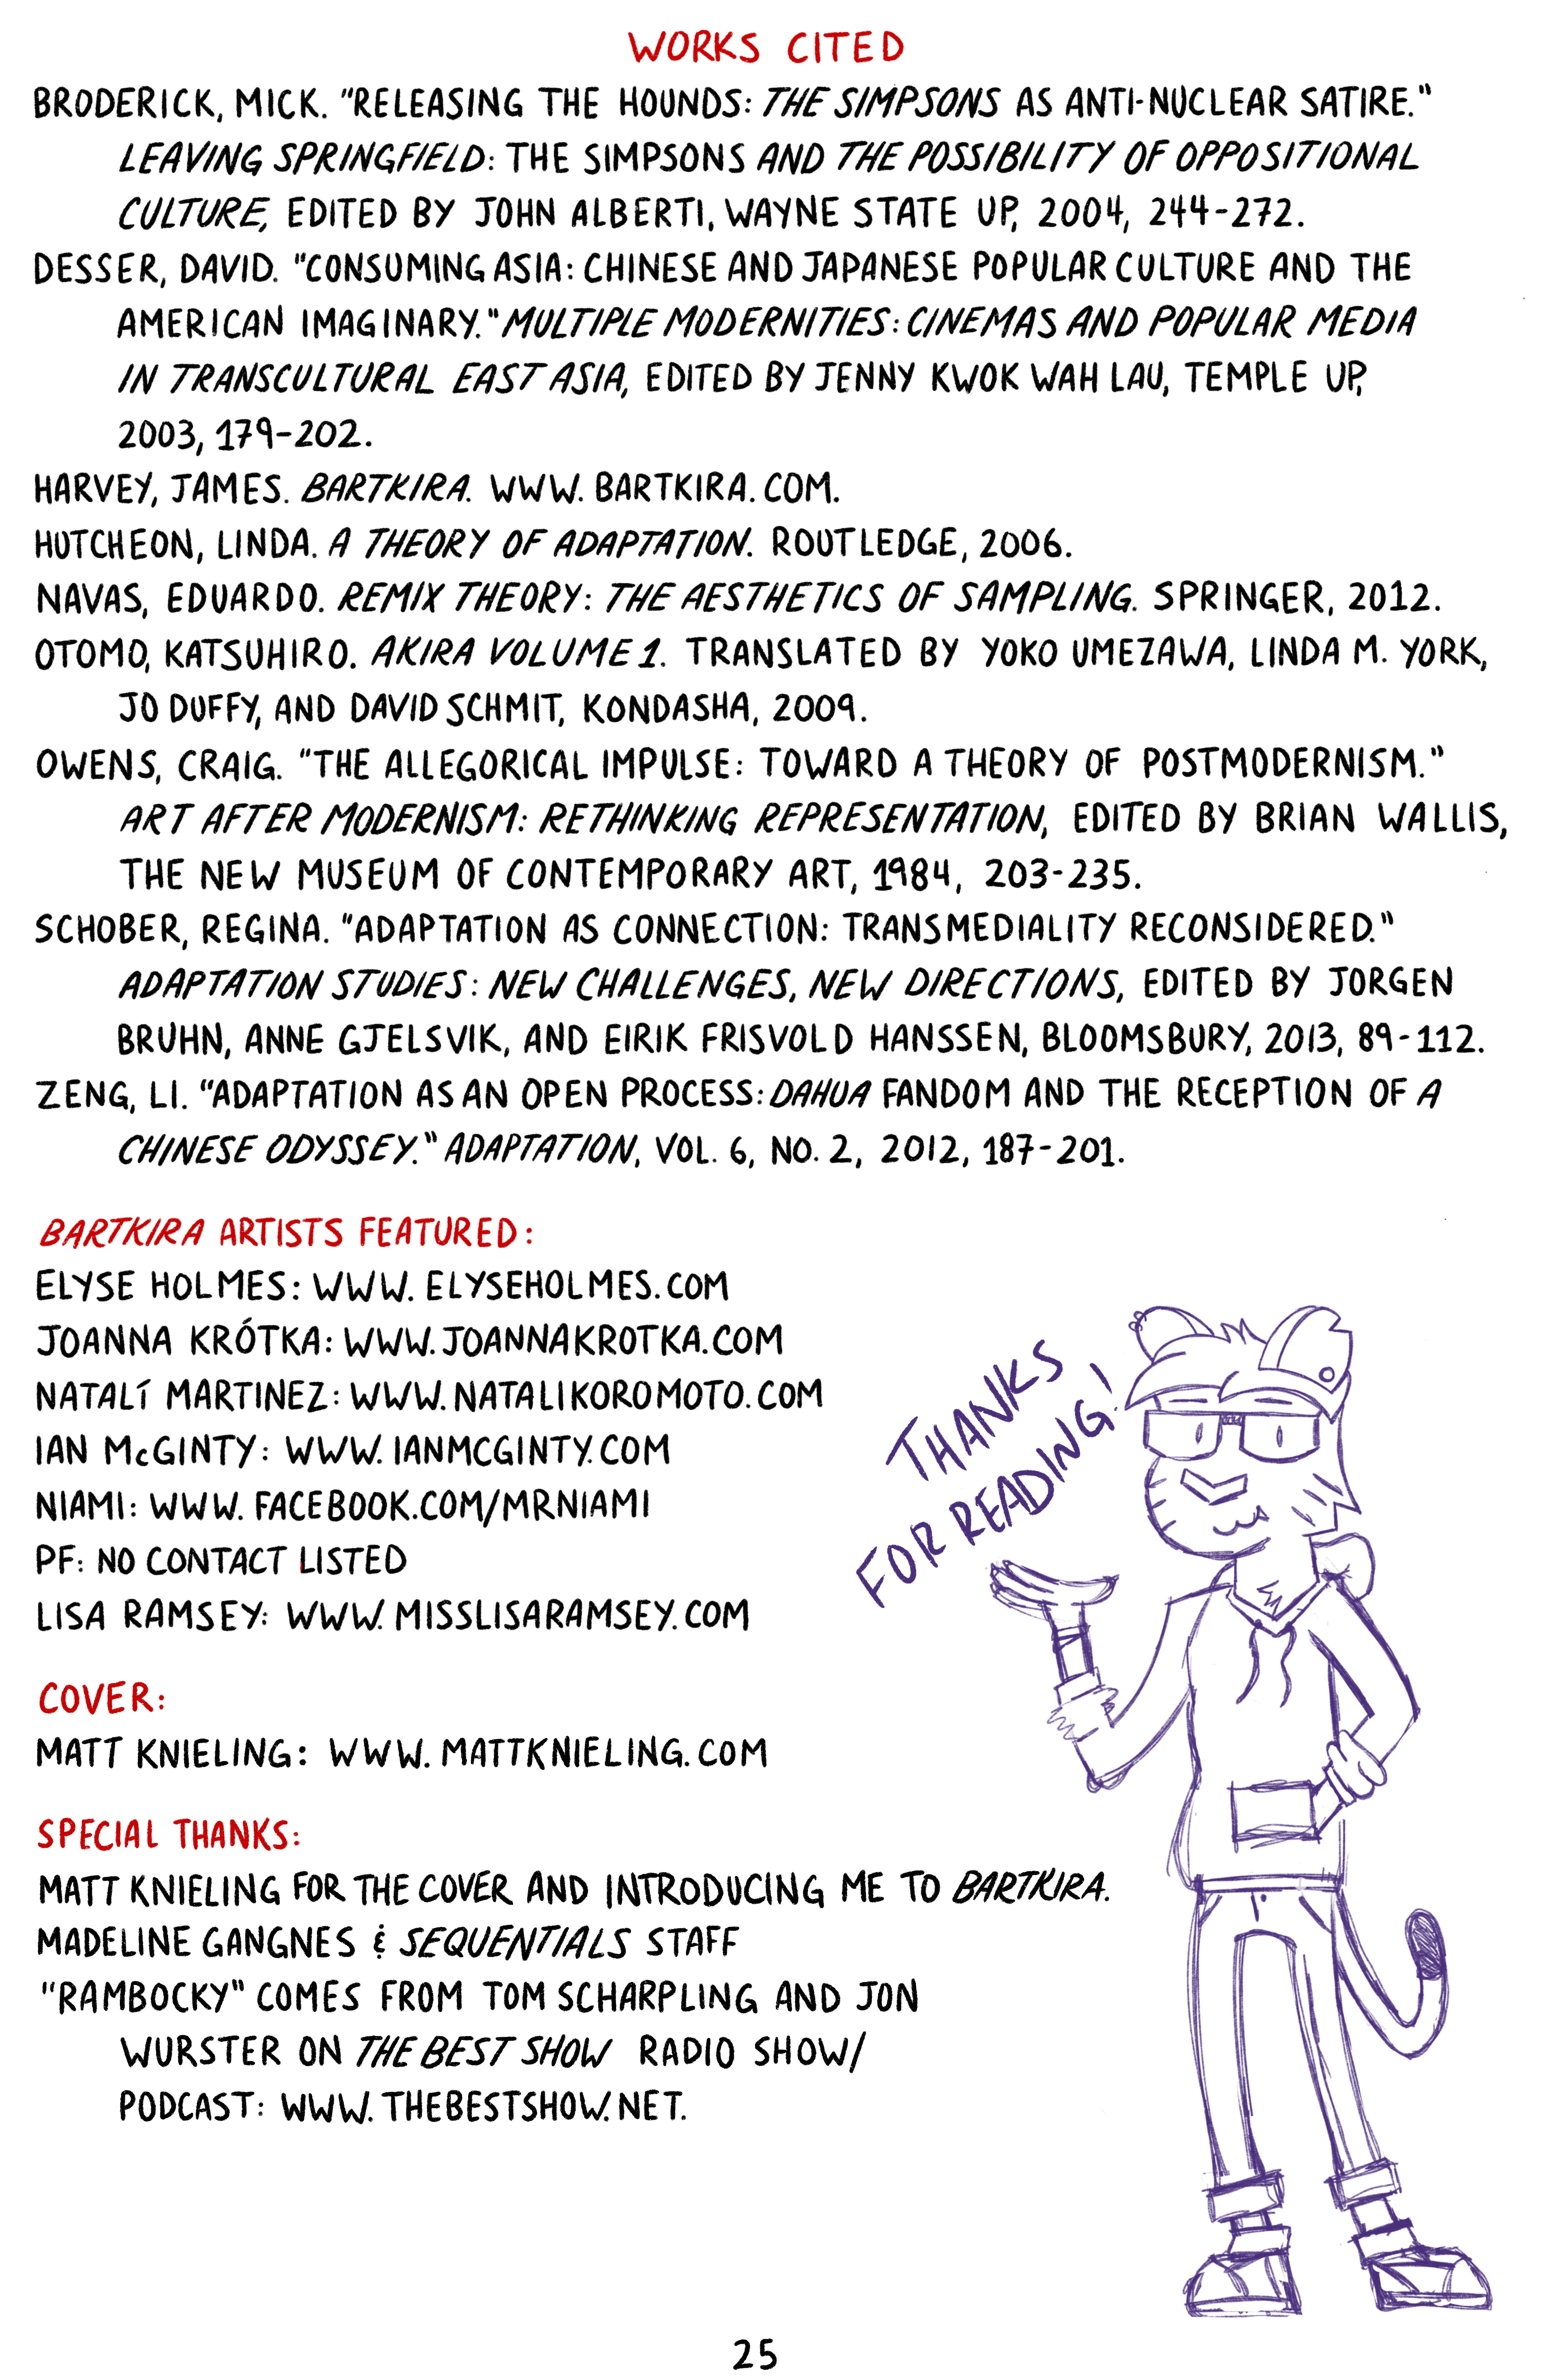 WORKS CITED
BRODERICK, MICK. "RELEASING THE HOUNDS: THE SIMPSONS AS ANTI-NUCLEAR SATIRE."
LEAVING SPRINGFIELD: THE SIMPSONS AND THE POSSIBILITY OF OPPOSITIONAL
CULTURE, EDITED BY JOHN ALBERTI, WAYNE STATE UP, 2004, 244-272.
DESSER, DAVID. "CONSUMING ASIA: CHINESE AND JAPANESE POPULAR CULTURE AND THE
AMERICAN IMAGINARY." MULTIPLE MODERNITIES: CINEMAS AND POPULAR MEDIA
IN TRANSCULTURAL EAST ASIA, EDITED BY JENNY KWOK WAH LAU, TEMPLE UP,
2003, 179-202.
HARVEY, JAMES. BARTKIRA. WWW.BARTKIRA.COM.
HUTCHEON, LINDA. A THEORY OF ADAPTATION. ROUTLEDGE, 2006.
NAVAS, EDUARDO. REMIX THEORY: THE AESTHETICS OF SAMPLING. SPRINGER, 2012.
OTOMO, KATSUHIRO. AKIRA VOLUME 1. TRANSLATED BY YOKO UMEZAWA, LINDA M. YORK,
JO DUFFY, AND DAVID SCHMIT, KONDASHA, 2009.
OWENS, CRAIG. "THE ALLEGORICAL IMPULSE: TOWARD A THEORY OF POSTMODERNISM."
ART AFTER MODERNISM: RETHINKING REPRESENTATION, EDITED BY BRIAN WALLIS,
THE NEW MUSEUM OF CONTEMPORARY ART, 1984, 203-235.
SCHOBER, REGINA. "ADAPTATION AS CONNECTION: TRANSMEDIALITY RECONSIDERED."
ADAPTATION STUDIES: NEW CHALLENGES, NEW DIRECTIONS, EDITED BY JORGEN
BRUHN, ANNE GJELSVIK, AND EIRIK FRISVOLD HANSSEN, BLOOMSBURY, 2013, 89-112.
ZENG, LI. "ADAPTATION AS AN OPEN PROCESS: DAHUA FANDOM AND THE RECEPTION OF A
CHINESE ODYSSEY." ADAPTATION, VOL. 6, NO. 2, 2012, 187-201.
BARTKIRA ARTISTS FEATURED:
ELYSE HOLMES: WWW.ELYSEHOLMES.COM
JOANNA KRÓTKA: WWW.JOANNAKROTKA.COM
NATALÍ MARTINEZ: WWW.NATALIKOROMOTO.COM
IAN McGINTY: WWW.IANMCGINTY.COM
NIAMI: WWW.FACEBOOK.COM/MRNIAMI
PF: NO CONTACT LISTED
LISA RAMSEY: WWW.MISSLISARAMSEY.COM
THANKS
FOR READING!
COVER:
MATT KNIELING: WWW.MATTKNIELING.COM
SPECIAL THANKS:
MATT KNIELING FOR THE COVER AND INTRODUCING ME TO BARTKIRA.
MADELINE GANGNES & SEQUENTIALS STAFF
"RAMBOCKY" COMES FROM TOM SCHARPLING AND JON
WURSTER ON THE BEST SHOW RADIO SHOW/
PODCAST: WWW.THEBESTSHOW.NET.
25